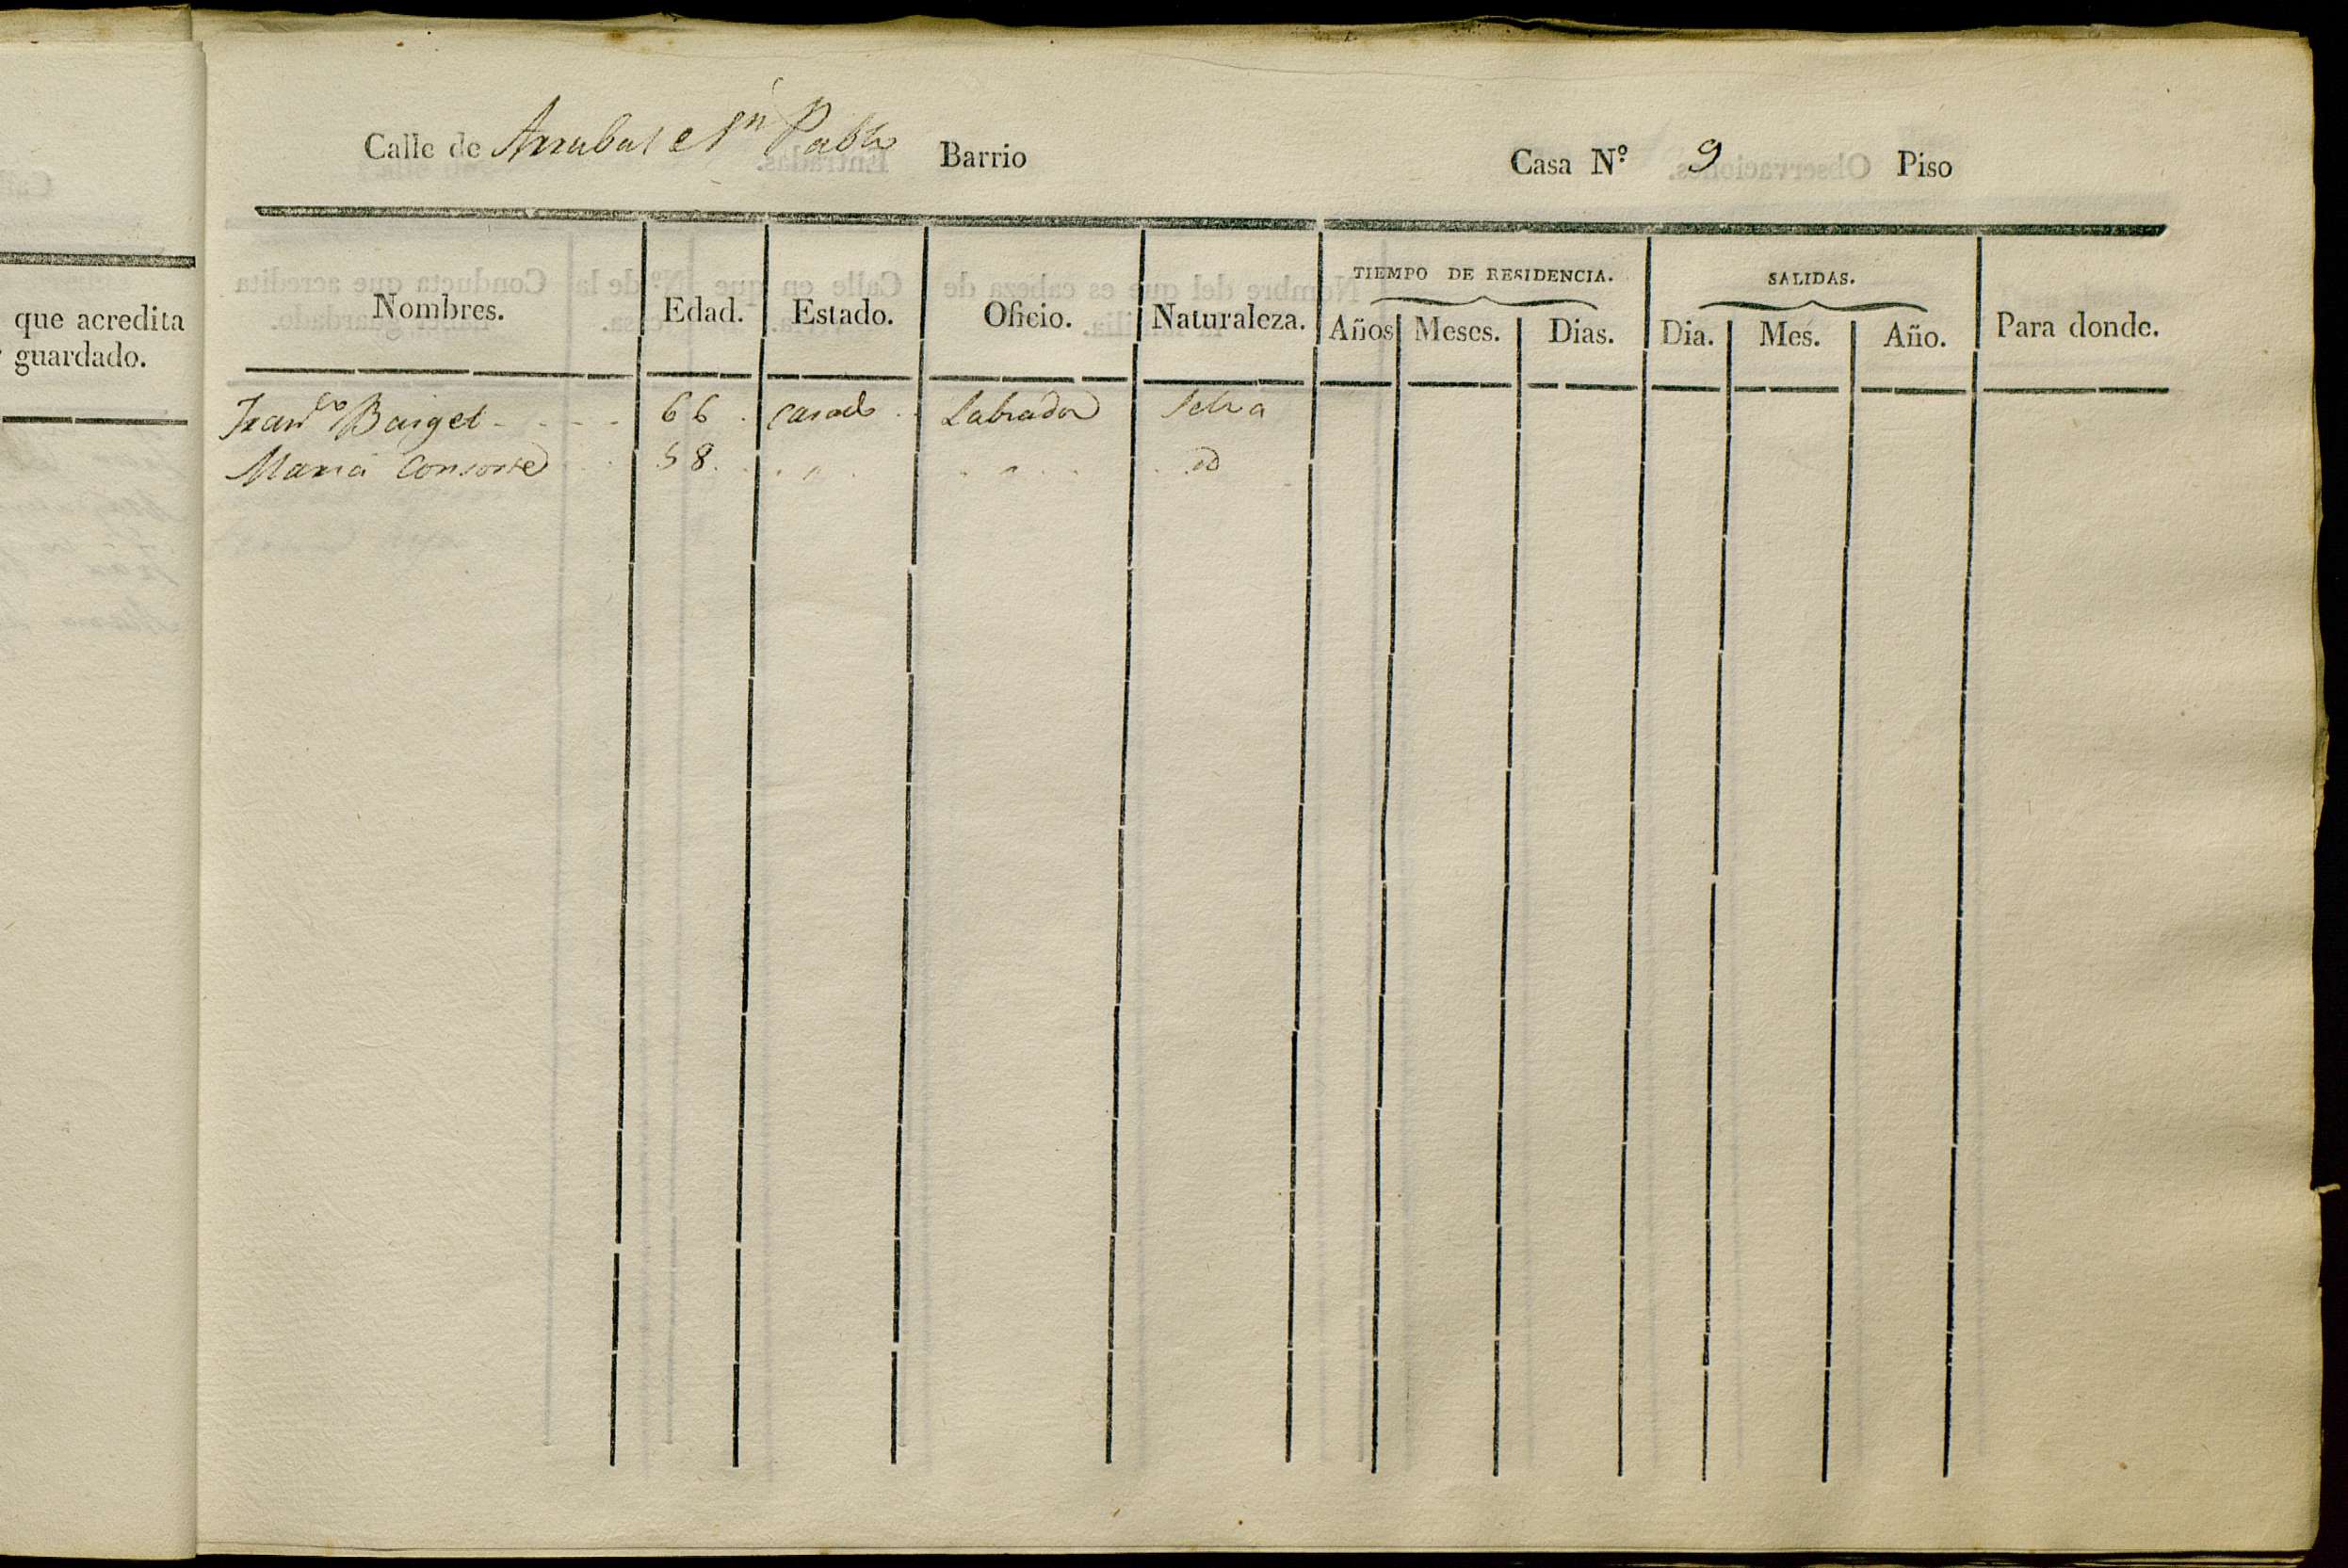 que acredita
guardado.
Calle de Arrabal de Sn Pablo Barrio Casa Nº 9 Piso
Nombres. Edad. Estado. Oficio. Naturaleza. TIEMPO DE RESIDENCIA. Años Meses. Dias. SALIDAS. Dia. Mes. Año. Para donde.
Franco Baiget 66 casado Labrador Selva
Maria Consorte 58 id